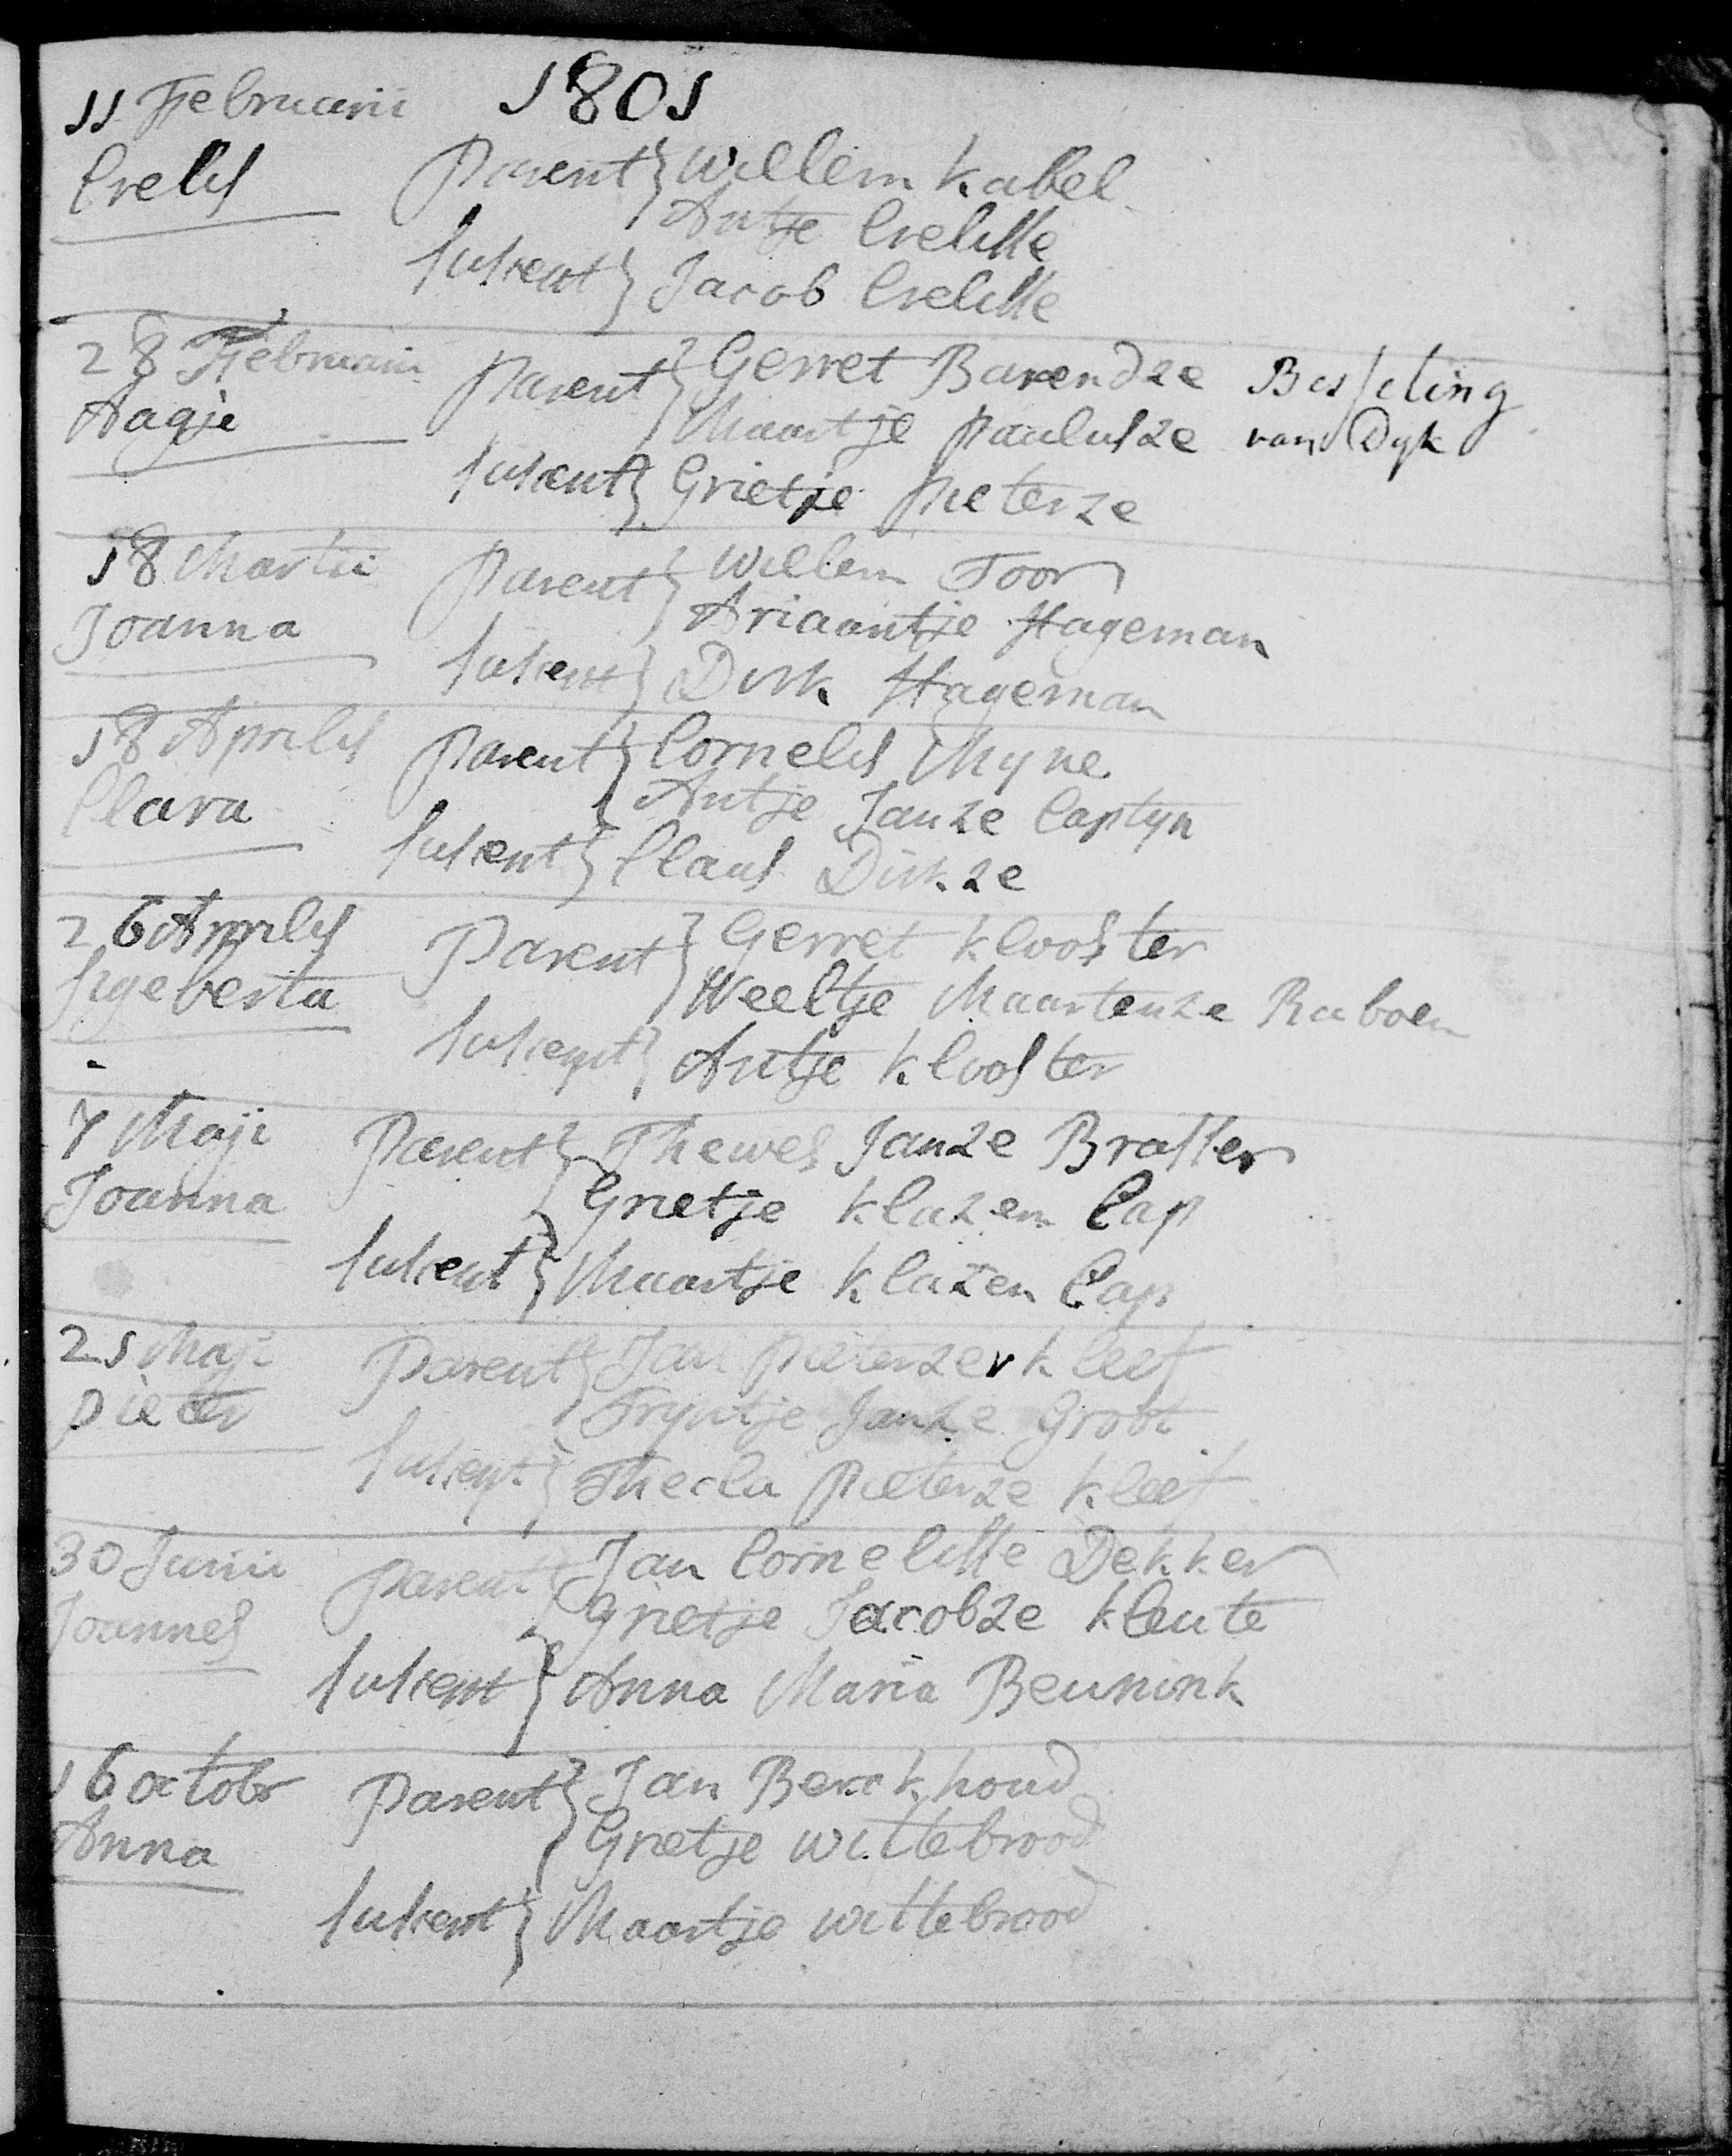 1801
11 Februarii
Crelis Parent } Willem Kabel
Antje Crelisse
suscent } Jacob Crelisse
28 Februarii
Aagje Parent } Gerret Barendze Besseling
Maartje Paulusze van Dyk
suscent } Grietje Pieterze
18 Martii
Joanna Parent } Willem Toor
Ariaantje Hageman
suscent } Dirk Hageman
18 Aprilis
Clara Parent } Cornelis Myne
Antje Janze Captyn
suscent } Claas Dirkze
26 Aprilis
Sigeberta Parent } Gerret Klooster
Weeltje Maartenze Raboen
suscept } Antje Klooster
7 Maji
Joanna Parent } Thewes Janze Brasser
Grietje Klazen Cap
suscent } Maartje Klazen Cap
21 Maji
Pieter Parent } Jan Pieterze Kleef
Tryntje Janze Groot
suscept } Thecla Pieterze Kleef
30 Junii
Joannes Parent } Jan Cornelisse Dekker
Grietje Jacobze Kleute
suscept } Anna Maria Beunink
16 octobr
Anna Parent } Jan Berckhoud
Grietje Wittebrood
suscent } Maartje Wittebrood